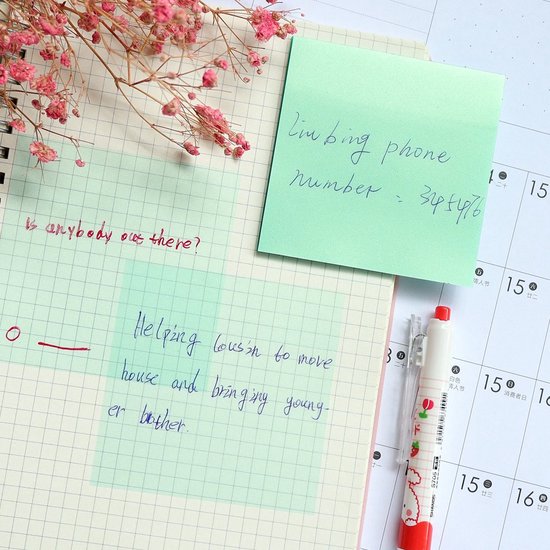 liu bing phone
number : 3454976
is anybody out there?
Helping cousin to move
house and bringing young-
er bother
15
15
15
15
16